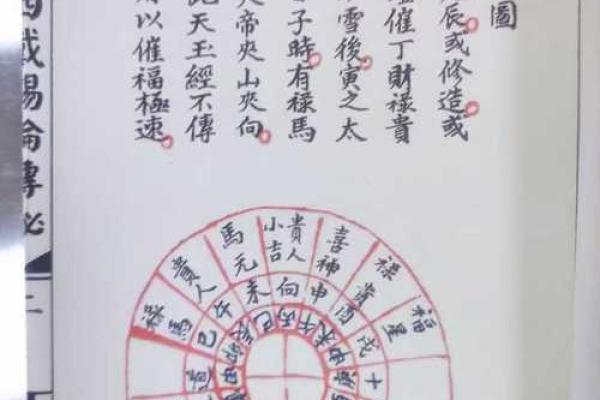 圖
辰或修造或
催丁財祿貴
雪後寅之太
子時有祿馬
帝夾山夾向
此天玉經不傳
以催福極速
二
祿馬
貴人
馬元
貴人
小吉
喜神
祿貴
福星
巳
午
未
向
申
酉
戌
巳
丙
午
未